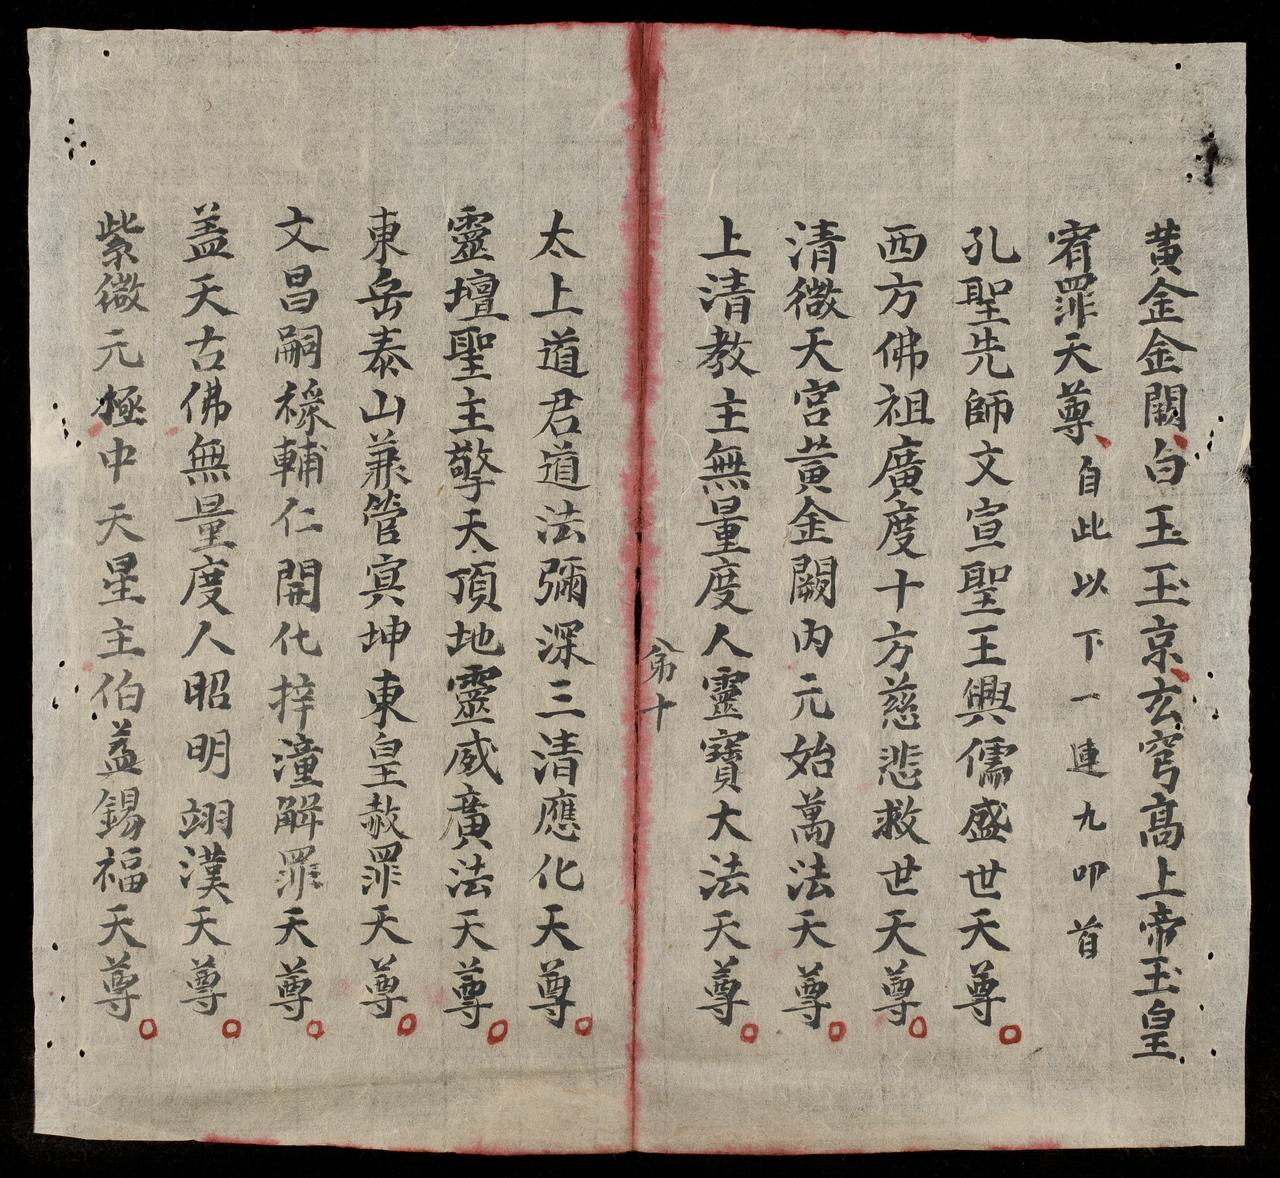 黄金金闕白玉玉京玄穹高上帝玉皇
宥罪天尊自此以下一連九叩首
孔聖先師文宣聖王興儒盛世天尊
西方佛祖廣度十方慈悲救世天尊
清微天宮黄金闕内元始萬法天尊
上清教主無量度人靈寶大法天尊
弟十
太上道君道法彌深三清應化天尊
靈壇聖主擎天頂地靈威廣法天尊
東岳泰山兼管寅坤東皇赦罪天尊
文昌嗣祿輔仁開化梓潼解罪天尊
盖天古佛無量度人昭明翊漢天尊
紫微元極中天星主伯益錫福天尊